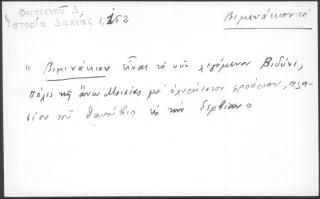 Φωτεινοῦ Δ.
Ἱστορία Δακίας 1,152
Βιμινάκιον τό
" Βιμινάκιον εἶναι τό νῦν λεγόμενον Βιδίνι,
πόλις τῆς ἄνω Μοισίας μέ ὀχυρώτατον φρούριον, πλη-
σίον τοῦ Δανούβεως κ τήν Σερβίαν "